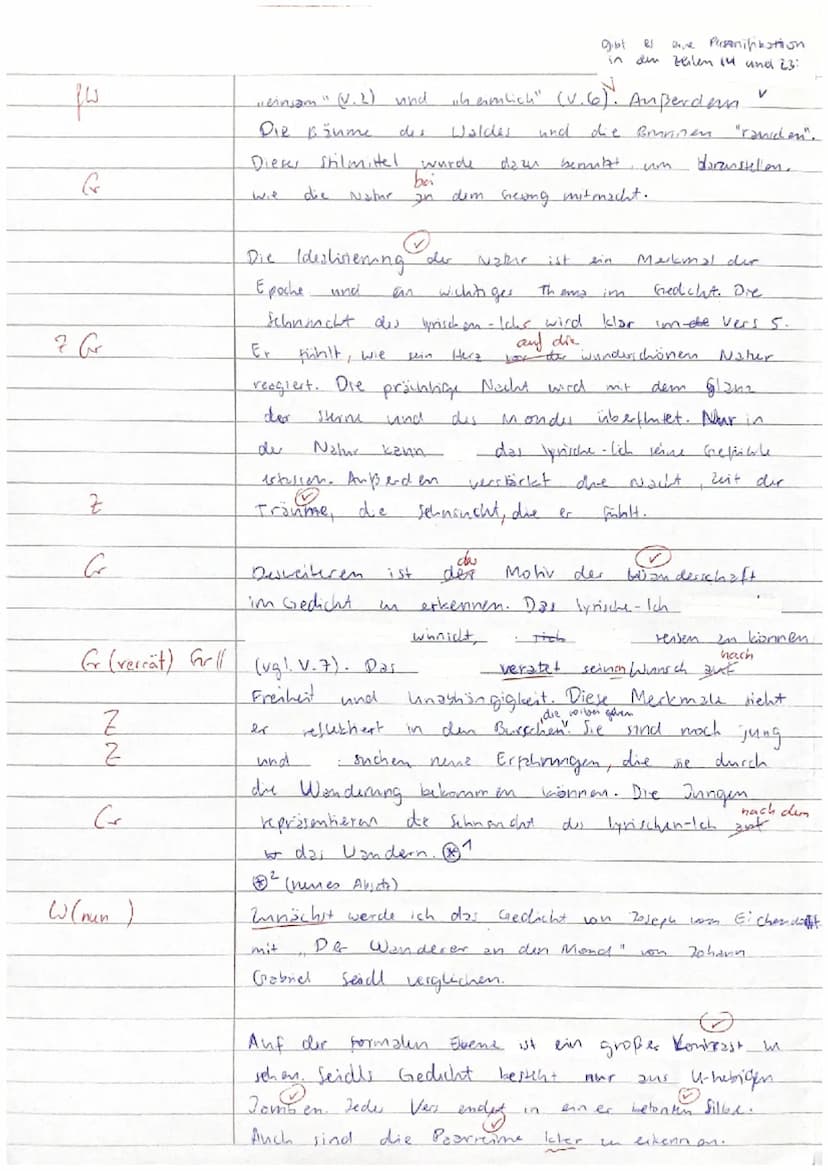 gibt es eine Personifikation
in den Zeilen 14 und 23:
fW „einsam" (V.2) und „heimlich" (V.6). Außerdem
Die Bäume des Waldes und die Brunnen "rauschen".
Dieses Stilmittel wurde dazu benutzt, um darzustellen,
bei
Gr wie die Natur an dem Gesang mitmacht.
Die Idealisierung der Natur ist ein Merkmal der
Epoche und ein wichtiges Thema im Gedicht. Die
Sehnsucht des lyrischen-Ichs wird klar im Vers 5.
auf die
? Gr Er fühlt, wie sein Herz wunderschönen Natur
reagiert. Die prächtige Nacht wird mit dem Glanz
der Sterne und des Mondes überflutet. Nur in
der Natur kann das lyrische-Ich seine Gefühle
Außerdem verstärkt die Nacht, Zeit der
Z Träume, die Sehnsucht, die er fühlt.
das
Gr Desweiteren ist der Motiv der Wanderschaft
im Gedicht zu erkennen. Das lyrische-Ich
wünscht, sich reisen zu können
nach
Gr (verrät) Gr// (vgl. V.7). Das veratet seinen Wunsch auf
Freiheit und Unabhängigkeit. Diese Merkmale sieht
die vorbei gehen
Z er reflektiert in den Burschen". Sie sind noch jung
Z und suchen neue Erfahrungen, die sie durch
die Wanderung bekommen können. Die Jungen
nach dem
Gr repräsentieren die Sehnsucht des lyrischen-Ich auf
das Wandern. ⊛1
⊛2 (neues Absatz)
W (nun ) Zunächst werde ich das Gedicht von Joseph von Eichendorff
mit „Der Wanderer an den Mond" von Johann
Gabriel Seidl verglichen.
Auf der formalen Ebene ist ein großer Kontrast zu
sehen. Seidls Gedicht besteht nur aus 4-hebigen
Jamben. Jedes Vers endet in einer betonten Silbe.
Auch sind die Paarreime klar zu erkennen.